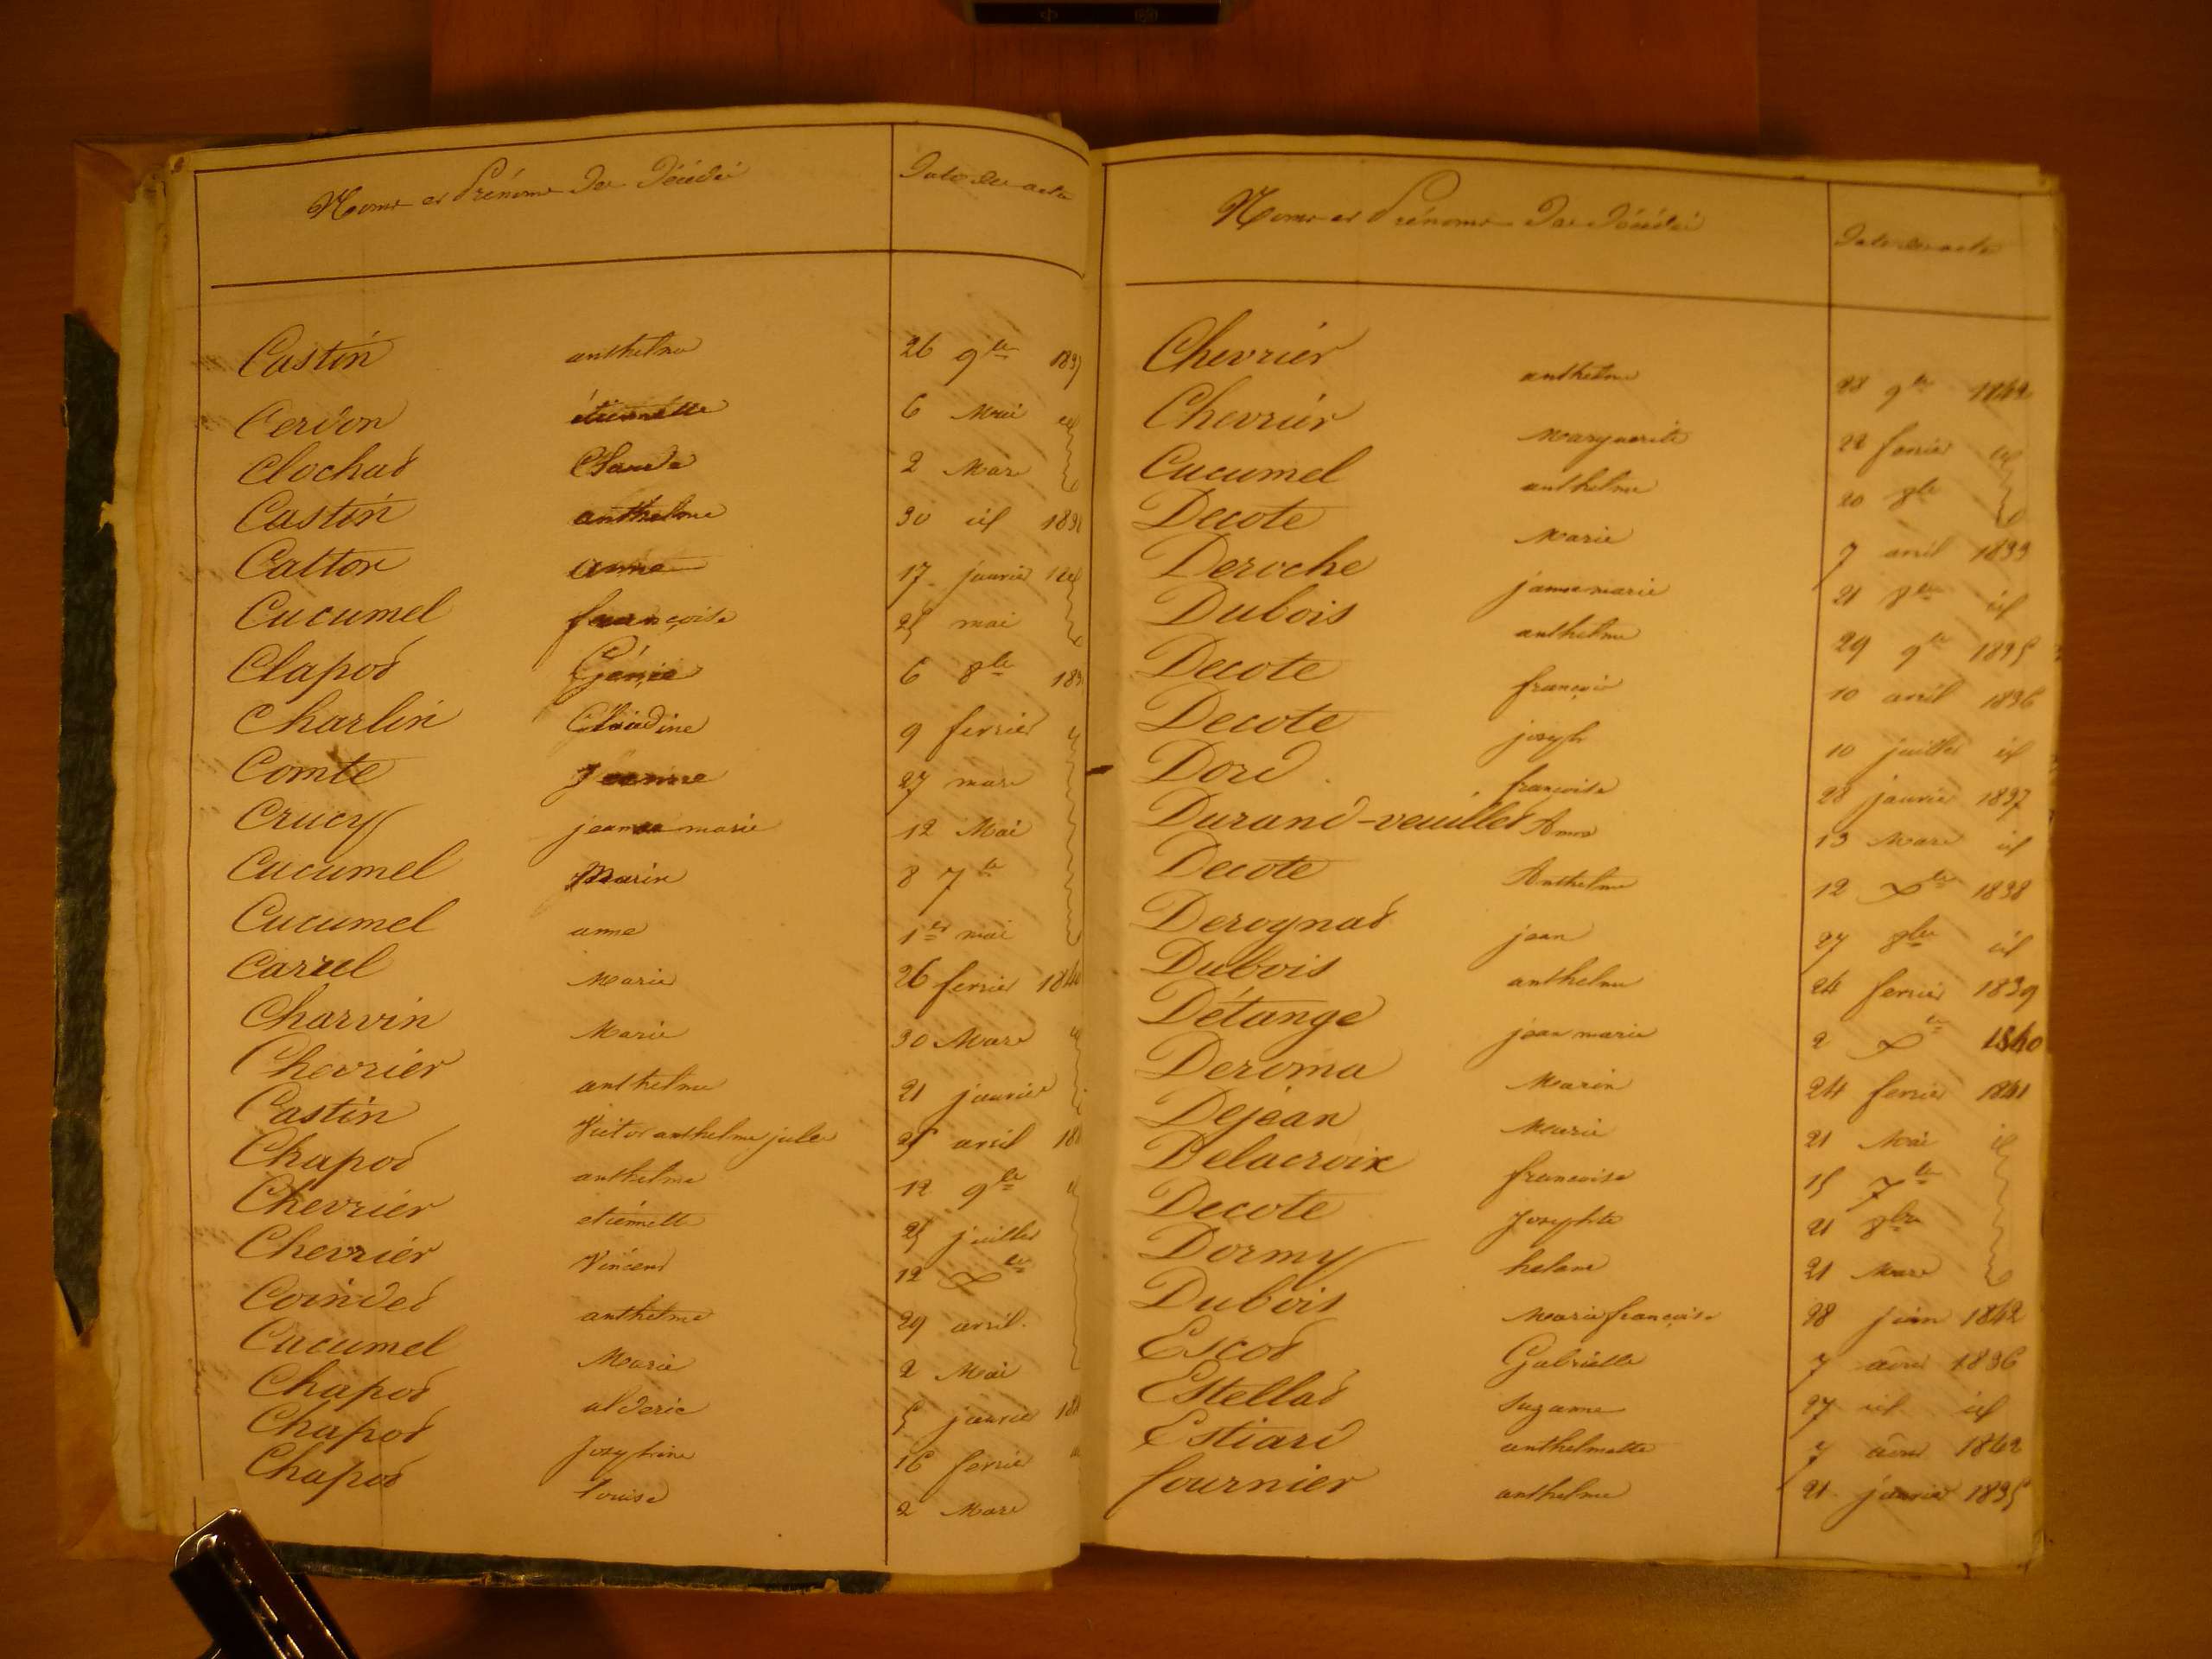 Noms et Prénoms des Décédés Date des actes
Castin anthelme 26 9bre 1837
Cerdon étiennette 6 Mai id
Clochat Claude 2 Mars
Castin anthelme 30 id 183
Catton anne 17 janvier
Cucumel françoise 25 mai
Clapot Génie 6 8bre 183
Charlin Claudine 9 fevrier
Comte Jeanne 27 mars
Crucy jeanne marie 12 Mai
Cucumel Marin 8 7bre
Cucumel anne 1er mai
Carrel Marie 26 fevrier 184
Charvin Marie 30 Mars
Chevrier anthelme 21 janvier
Castin Victor anthelme jules 25 avril 18
Chapot anthelme 12 9bre
Chevrier etiennette 25 juillet
Chevrier Vincent 12 Xbre
Coindet anthelme 29 avril
Cucumel Marie 2 Mai
Chapot alderic 5 janvier 18
Chapot Josephine 16 fevrier
Chapot Louise 2 Mars
Noms et Prénoms des Décédés Date des actes
Chevrier anthelme 28 9bre 1842
Chevrier Marguerite 22 fevrier id
Cucumel anthelme 20 8bre
Decote Marie 7 avril 1833
Deroche jeanne marie 21 8bre id
Dubois anthelme 29 9bre 1835
Decote françois 10 avril 1836
Decote joseph 10 juillet id
Dord françoise 28 janvier 1837
Durand-veuillet Anne 13 Mars id
Decote Anthelme 12 Xbre 1838
Derognat jean 27 8bre id
Dubois anthelme 24 fevrier 1839
Détange jean marie 2 Xbre 1840
Deroma Marin 24 fevrier 1841
Dejean Marie 21 Mai id
Delacroix françoise 15 7bre
Decote Josephte 21 8bre
Dormy helene 21 Mars
Dubois Marie françoise 28 juin 1842
Escot Gabrielle 7 aout 1836
Estellat Suzanne 27 id id
Estiard anthelmette 7 aout 1842
fournier anthelme 21 janvier 1835